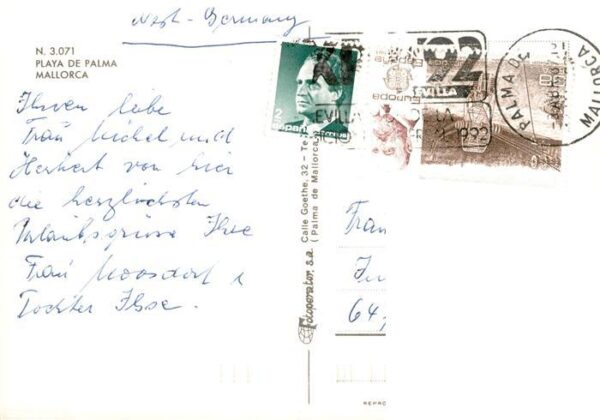 West-Germany
N. 3.071
PLAYA DE PALMA
MALLORCA
Ihnen liebe
Frau Michel und
Herbert von hier
die herzlichsten
Urlaubsgrüsse Ihre
Frau Moosdorf u
Tochter Ilse.
Fotoperator, s.a. Calle Goethe, 32 - Te
(Palma de Mallorca
2
españa
Europa
92
SEVILLA
1992
PALMA DE
MALLORCA
Frau
64
REPRO